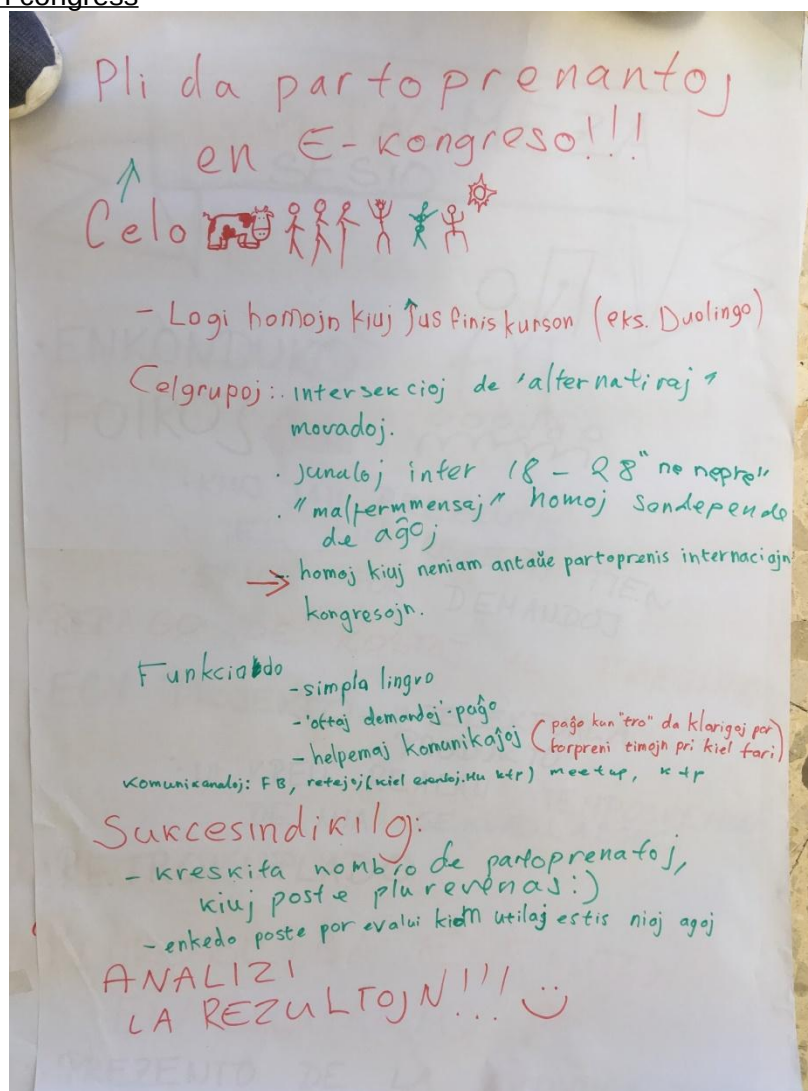 congress
Pli da partoprenantoj
en E-kongreso!!!
Celo
- Logi homojn kiuj ĵus finis kurson (eks. Duolingo)
Celgrupoj: . intersekcioj de 'alternativaj'
movadoj.
. junuloj inter 18 - 28 "ne nepre"
. "malfermmensaj" homoj sendepende
de aĝoj
→ . homoj kiuj neniam antaŭe partoprenis internaciajn
kongresojn.
Funkciado
- simpla lingvo
- 'oftaj demandoj'-paĝo
- helpemaj komunikaĵoj (paĝo kun "tro" da klarigoj por
forpreni timojn pri kiel fari)
Komunikanaloj: FB, retejoj (kiel eventoj.hu ktp) meetup, ktp
Sukcesindikiloj:
- kreskita nombro de partoprenatoj,
kiuj poste plu revenas :)
- enkedo poste por evalui kiom utilaj estis niaj agoj
ANALIZI
LA REZULTOJN!!!